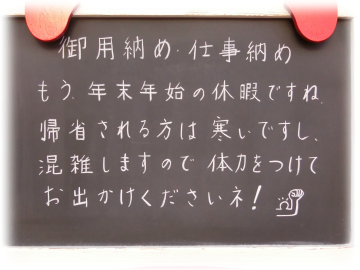 御用納め・仕事納め
もう、年末年始の休暇ですね、
帰省される方は寒いですし、
混雑しますので体力をつけて
お出かけくださいネ!